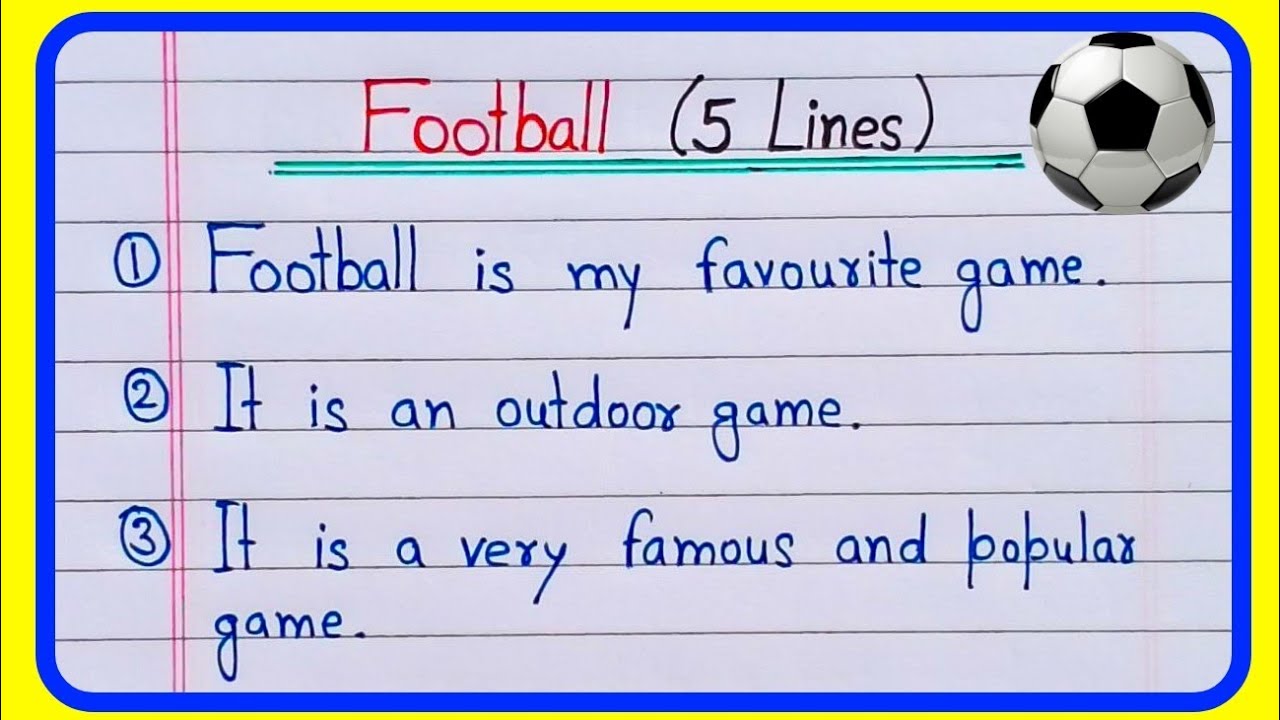 Football (5 Lines)
① Football is my favourite game.
② It is an outdoor game.
③ It is a very famous and popular
game.